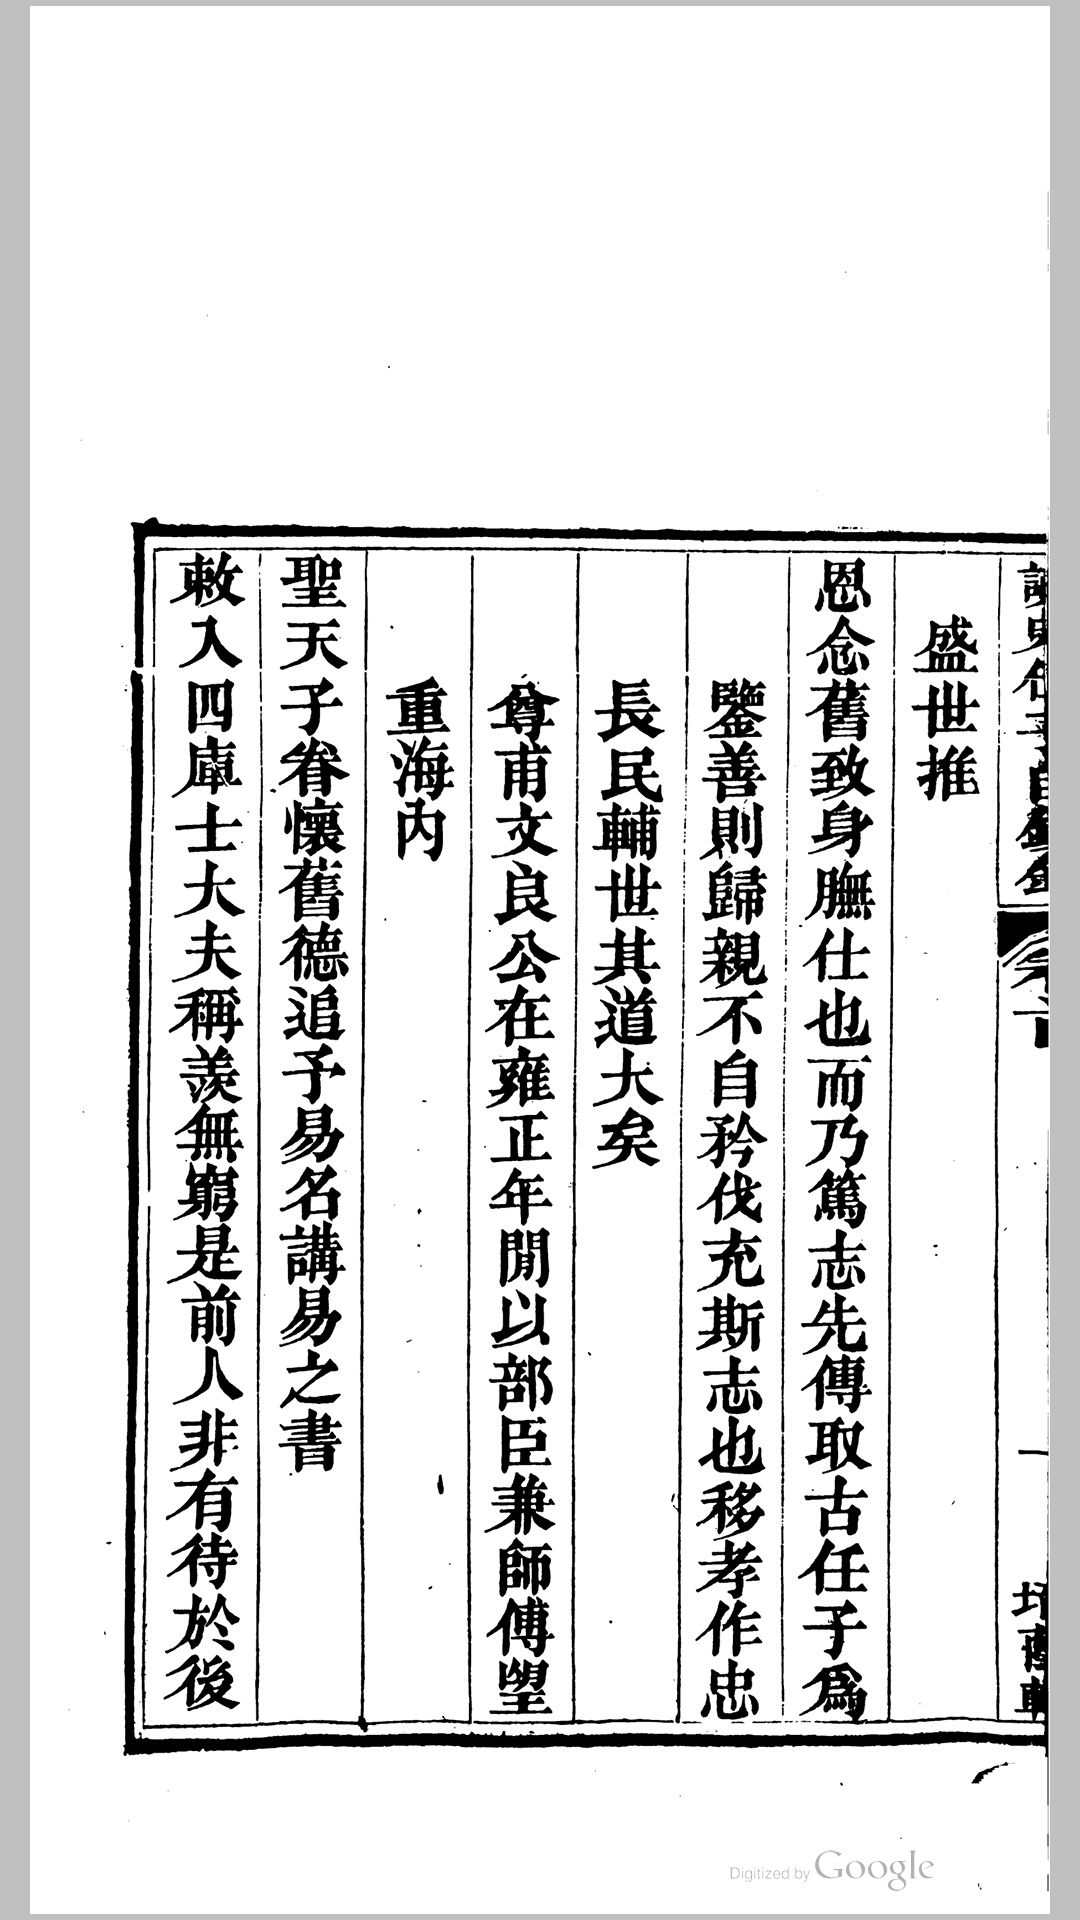 盛世推
恩念舊致身膴仕也而乃篤志先傳取古任子爲
鑒善則歸親不自矜伐充斯志也移孝作忠
長民輔世其道大矣
尊甫文良公在雍正年閒以部臣兼師傅望
重海內
聖天子眷懷舊德追予易名講易之書
敕入四庫士大夫稱羨無窮是前人非有待於後
Digitized by Google